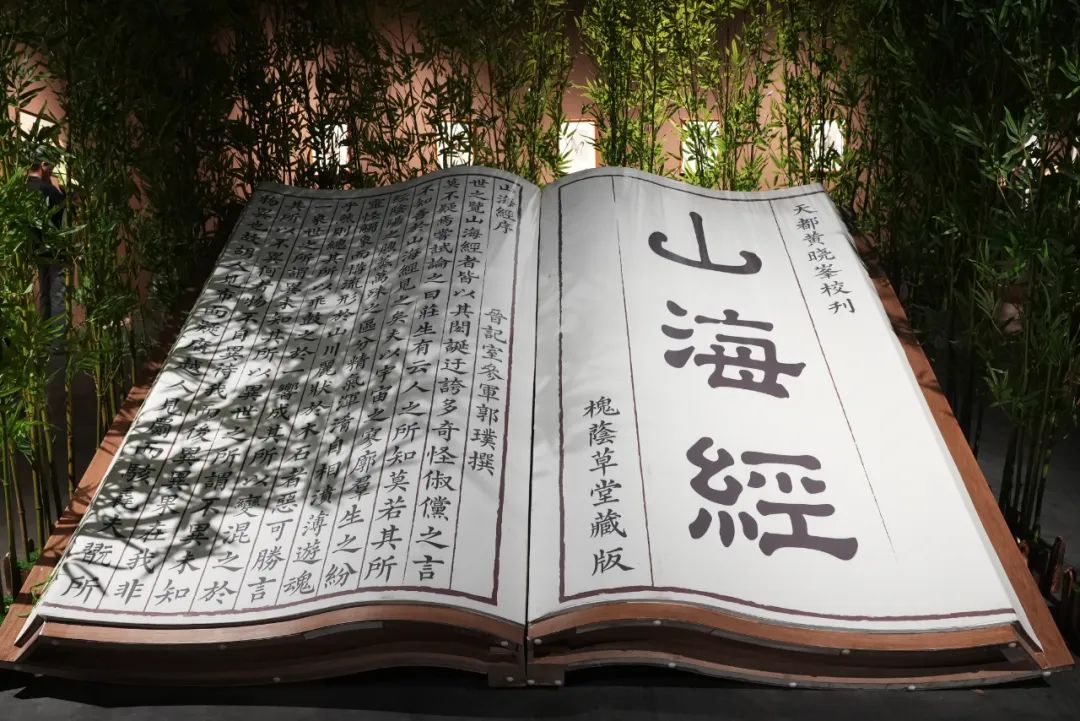 天都黄晓峯校刊
山海經
槐蔭草堂藏版
山海經序 晉記室參軍郭璞撰
世之覽山海經者皆以其閎誕迂誇多奇怪俶儻之言
莫不疑焉嘗試論之曰莊生有云人之所知莫若其所
不知吾於山海經見之矣夫以宇宙之寥廓羣生之紛
紜陰陽之煦蒸萬殊之區分精氣渾淆自相濆薄遊魂
靈怪觸象而構流形於山川麗狀於木石者惡可勝言
乎然則總其所以乖鼓之於一響成其所以變混之於
一象世之所謂異未知其所以異世之所謂不異未知
其所以不異何者物不自異待我而後異異果在我非
物異也故胡人見布而疑越人見罽而駭毳夫翫所